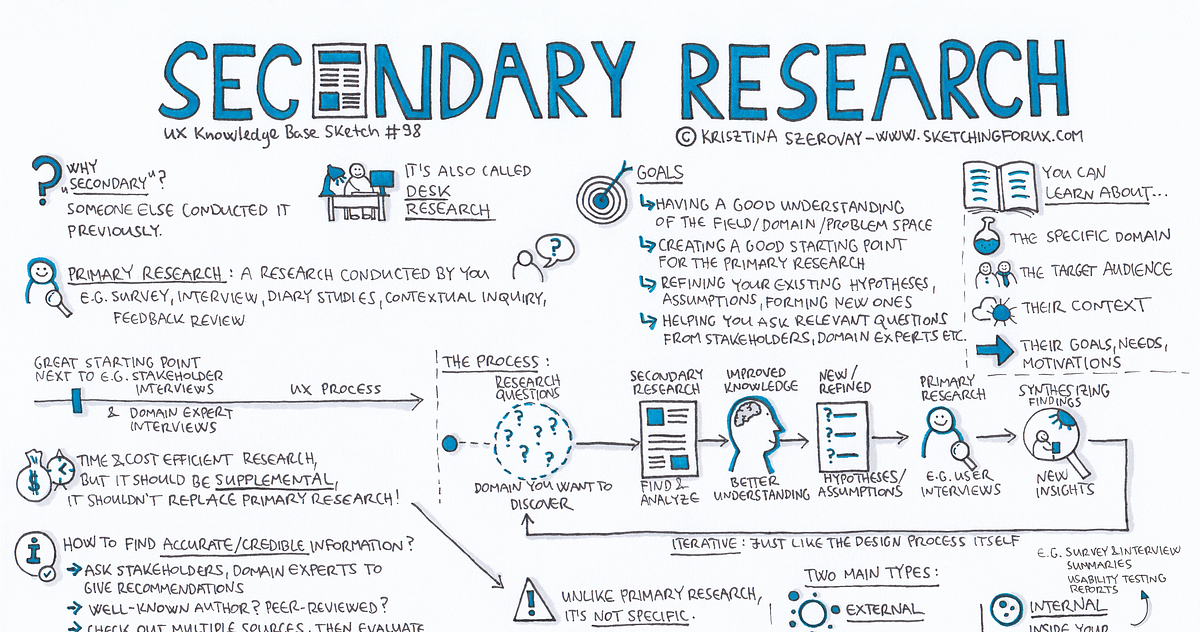 SECONDARY RESEARCH
UX Knowledge Base Sketch #98
© KRISZTINA SZEROVAY - WWW.SKETCHINGFORUX.COM
WHY
"SECONDARY"?
SOMEONE ELSE CONDUCTED IT
PREVIOUSLY.
IT'S ALSO CALLED
DESK
RESEARCH
PRIMARY RESEARCH: A RESEARCH CONDUCTED BY YOU
E.G. SURVEY, INTERVIEW, DIARY STUDIES, CONTEXTUAL INQUIRY,
FEEDBACK REVIEW
GOALS
HAVING A GOOD UNDERSTANDING
OF THE FIELD/DOMAIN/PROBLEM SPACE
CREATING A GOOD STARTING POINT
FOR THE PRIMARY RESEARCH
REFINING YOUR EXISTING HYPOTHESES,
ASSUMPTIONS, FORMING NEW ONES
HELPING YOU ASK RELEVANT QUESTIONS
FROM STAKEHOLDERS, DOMAIN EXPERTS ETC.
YOU CAN
LEARN ABOUT...
THE SPECIFIC DOMAIN
THE TARGET AUDIENCE
THEIR CONTEXT
THEIR GOALS, NEEDS,
MOTIVATIONS
GREAT STARTING POINT
NEXT TO E.G. STAKEHOLDER
INTERVIEWS
UX PROCESS
& DOMAIN EXPERT
INTERVIEWS
TIME & COST EFFICIENT RESEARCH,
BUT IT SHOULD BE SUPPLEMENTAL,
IT SHOULDN'T REPLACE PRIMARY RESEARCH!
THE PROCESS:
RESEARCH
QUESTIONS
DOMAIN YOU WANT TO
DISCOVER
SECONDARY
RESEARCH
FIND &
ANALYZE
IMPROVED
KNOWLEDGE
BETTER
UNDERSTANDING
NEW/
REFINED
HYPOTHESES/
ASSUMPTIONS
PRIMARY
RESEARCH
E.G. USER
INTERVIEWS
SYNTHESIZING
FINDINGS
NEW
INSIGHTS
ITERATIVE: JUST LIKE THE DESIGN PROCESS ITSELF
HOW TO FIND ACCURATE/CREDIBLE INFORMATION?
ASK STAKEHOLDERS, DOMAIN EXPERTS TO
GIVE RECOMMENDATIONS
WELL-KNOWN AUTHOR? PEER-REVIEWED?
CHECK OUT MULTIPLE SOURCES, THEN EVALUATE
UNLIKE PRIMARY RESEARCH,
IT'S NOT SPECIFIC.
TWO MAIN TYPES:
EXTERNAL
E.G. SURVEY & INTERVIEW
SUMMARIES
USABILITY TESTING
REPORTS
INTERNAL
INSIDE YOUR